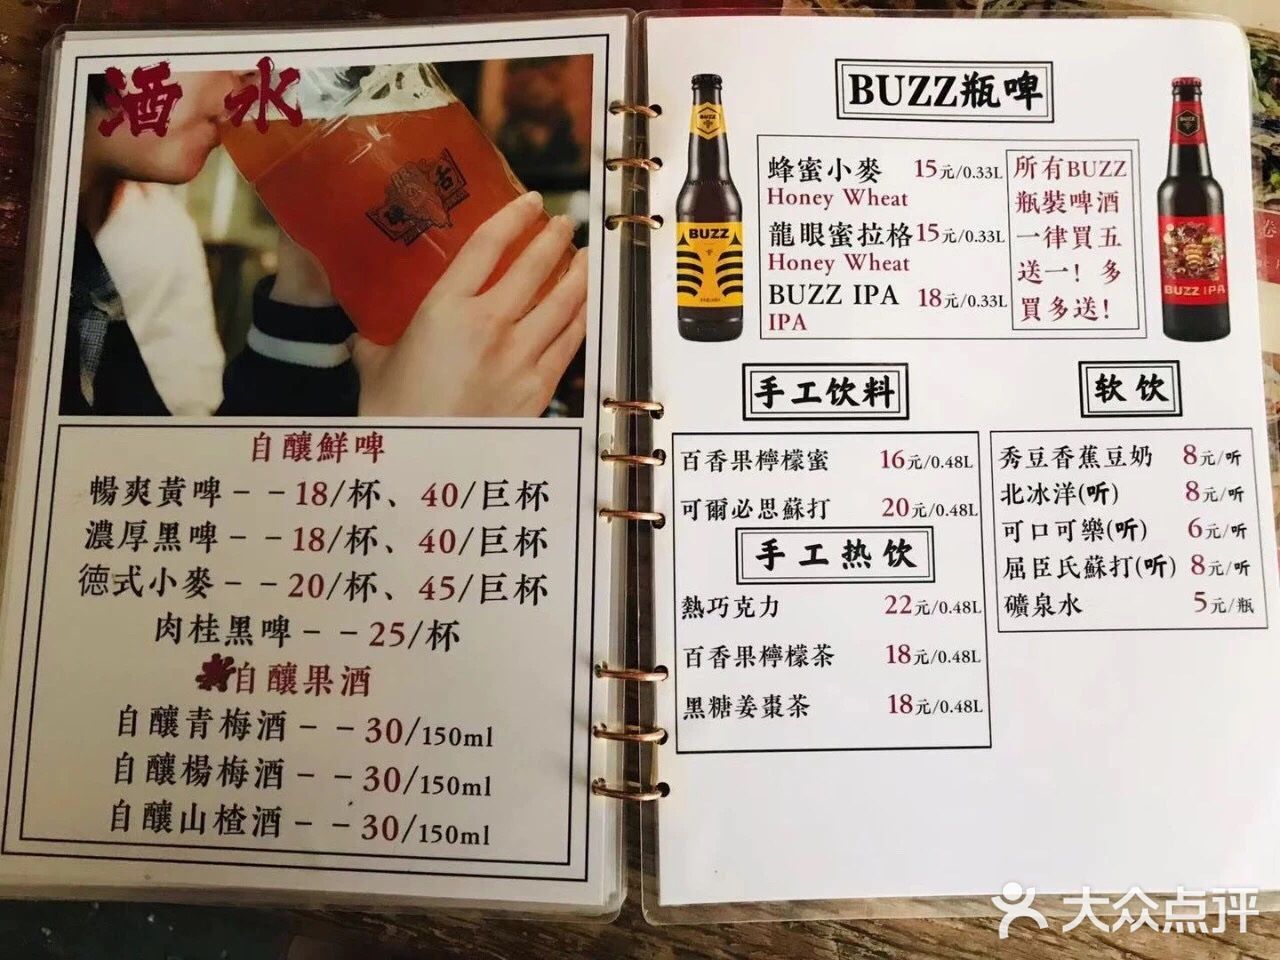 酒水
自釀鮮啤
暢爽黃啤－－18/杯、40/巨杯
濃厚黑啤－－18/杯、40/巨杯
德式小麥－－20/杯、45/巨杯
肉桂黑啤－－25/杯
新自釀果酒
自釀青梅酒－－30/150ml
自釀楊梅酒－－30/150ml
自釀山楂酒－－30/150ml
BUZZ瓶啤
蜂蜜小麥 15元/0.33L
Honey Wheat
龍眼蜜拉格 15元/0.33L
Honey Wheat
BUZZ IPA 18元/0.33L
IPA
所有BUZZ
瓶裝啤酒
一律買五
送一！多
買多送！
BUZZ
BUZZ
BUZZ IPA
手工饮料
百香果檸檬蜜 16元/0.48L
可爾必思蘇打 20元/0.48L
手工热饮
熱巧克力 22元/0.48L
百香果檸檬茶 18元/0.48L
黑糖姜棗茶 18元/0.48L
软饮
秀豆香蕉豆奶 8元/听
北冰洋(听) 8元/听
可口可樂(听) 6元/听
屈臣氏蘇打(听) 8元/听
礦泉水 5元/瓶
大众点评